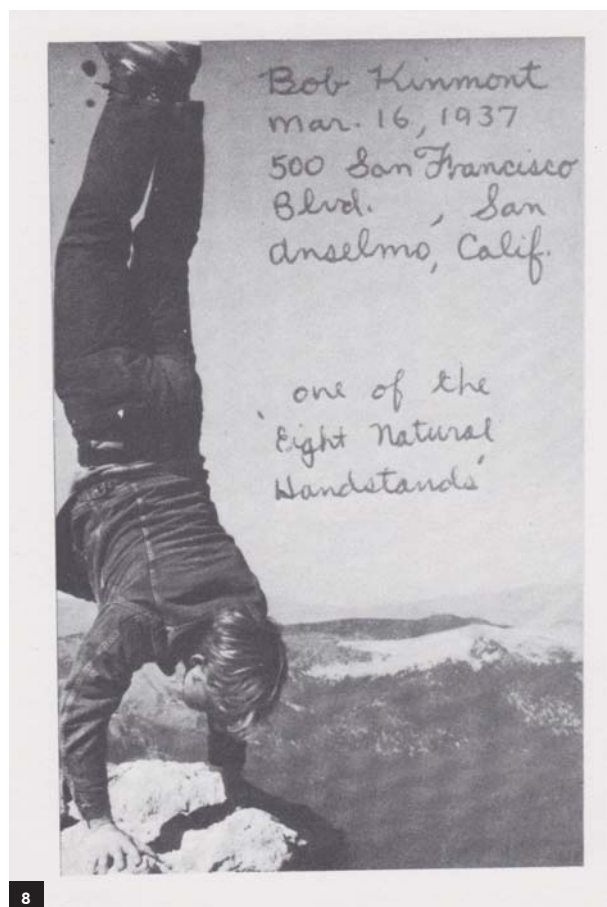 Bob Kinmont
Mar. 16, 1937
500 San Francisco
Blvd. , San
Anselmo, Calif.
one of the
'Eight Natural
Handstands'
8